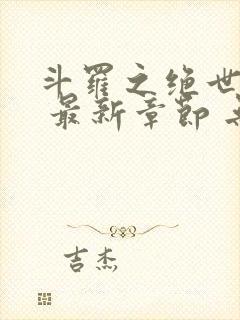 斗羅之绝世
最新章節
吉杰